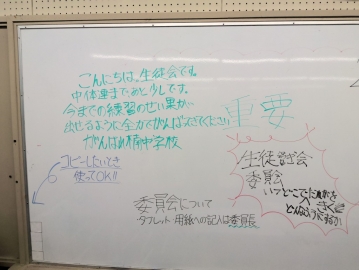 こんにちは。生徒会です。
中体連まであと少しです。
今までの練習のせい果が
出せるように全力でがんばってきてください
がんばれ楠中学校
重要
コピーしたいとき
使ってOK!!
生徒討会
委員会
いつどこで
どんなふうにするか
委員会について
タブレット・用紙への記入は委員長